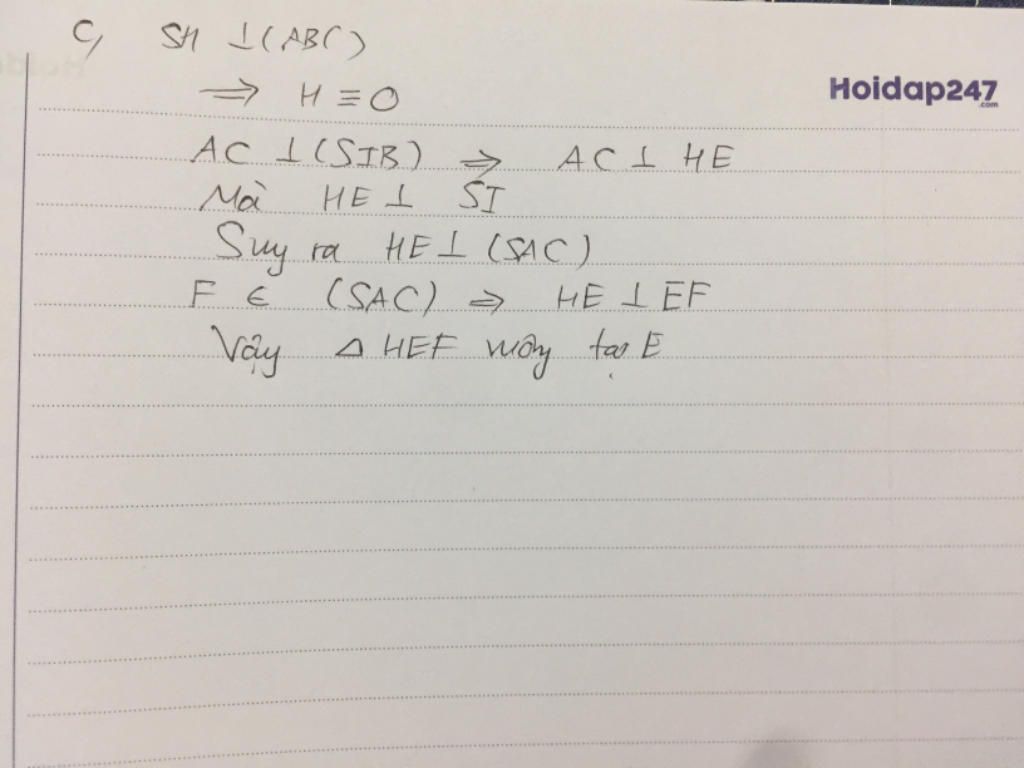 c, SH ⊥ (ABC)
Hoidap247
.com
⇒ H ≡ O
AC ⊥ (SIB) ⇒ AC ⊥ HE
Mà HE ⊥ SI
Suy ra HE ⊥ (SAC)
F ∈ (SAC) ⇒ HE ⊥ EF
Vậy △ HEF vuông tại E